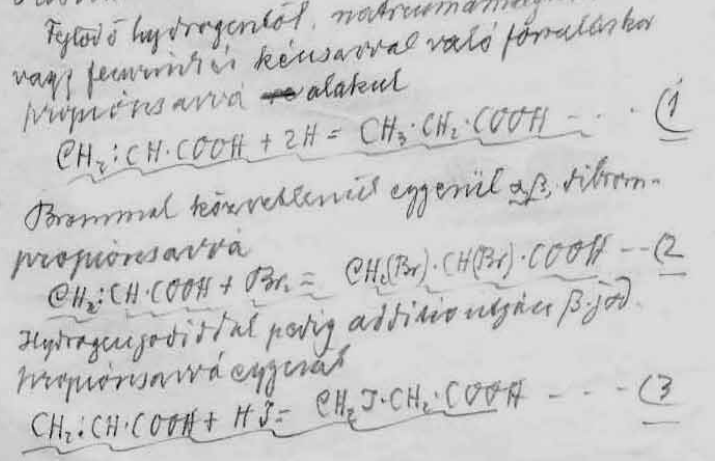 Fejlődő hydrogentől, natriumamalgam
vagy fém és kénsavval való forraláskor
propiónsavvá alakul
CH₂:CH·COOH + 2H = CH₃·CH₂·COOH - - · (1
Brommal közvetlenül egyenül α,β, dibrom-
propiónsavvá
CH₂:CH·COOH + Br₂ = CH₂(Br)·CH(Br)·COOH --(2
Hydrogenjodiddal pedig additio utján β-jod-
propiónsavvá egyenül
CH₂:CH·COOH + HJ = CH₂J·CH₂·COOH - - - (3